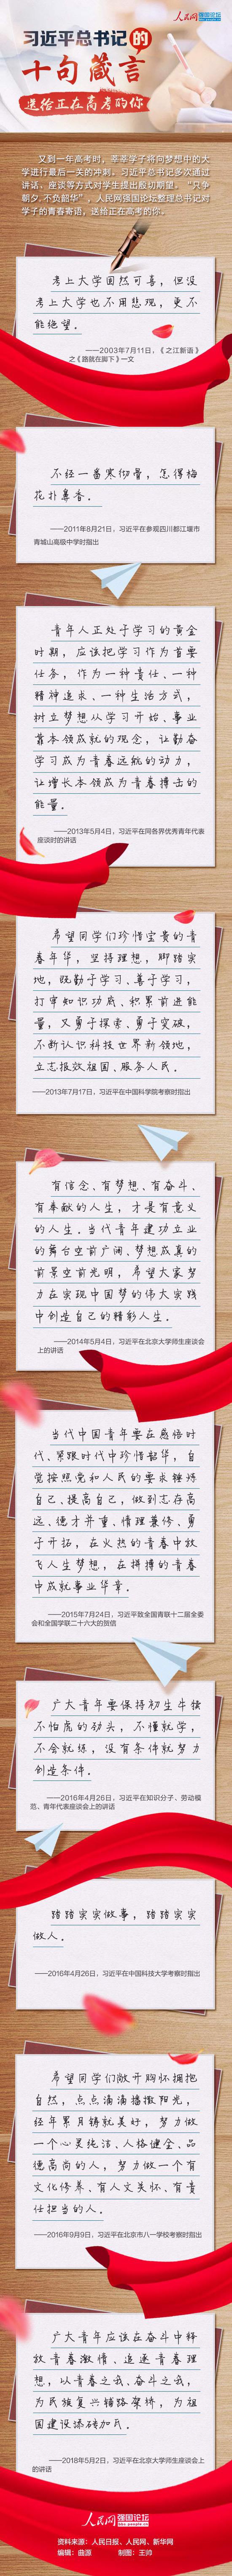 人民网 强国论坛
bbs.people.cn
习近平总书记的
十句箴言
送给正在高考的你
又到一年高考时，莘莘学子将向梦想中的大
学进行最后一关的冲刺。习近平总书记多次通过
讲话、座谈等方式对学生提出殷切期望。“只争
朝夕，不负韶华”，人民网强国论坛整理总书记对
学子的青春寄语，送给正在高考的你。
考上大学固然可喜，但没
考上大学也不用悲观，更不
能绝望。
——2003年7月11日，《之江新语》
之《路就在脚下》一文
不经一番寒彻骨，怎得梅
花扑鼻香。
——2011年8月21日，习近平在参观四川都江堰市
青城山高级中学时指出
青年人正处于学习的黄金
时期，应该把学习作为首要
任务，作为一种责任、一种
精神追求、一种生活方式，
树立梦想从学习开始、事业
靠本领成就的观念，让勤奋
学习成为青春远航的动力，
让增长本领成为青春搏击的
能量。
——2013年5月4日，习近平在同各界优秀青年代表
座谈时的讲话
希望同学们珍惜宝贵的青
春年华，坚持理想，脚踏实
地，既勤于学习、善于学习，
打牢知识功底、积累前进能
量，又勇于探索、勇于突破，
不断认识科技世界新领地，
立志报效祖国、服务人民。
——2013年7月17日，习近平在中国科学院考察时指出
有信念、有梦想、有奋斗、
有奉献的人生，才是有意义
的人生。当代青年建功立业
的舞台空前广阔、梦想成真的
前景空前光明，希望大家努
力在实现中国梦的伟大实践
中创造自己的精彩人生。
——2014年5月4日，习近平在北京大学师生座谈会
上的讲话
当代中国青年要在感悟时
代、紧跟时代中珍惜韶华，自
觉按照党和人民的要求锤炼
自己、提高自己，做到志存高
远、德才并重、情理兼修、勇
于开拓，在火热的青春中放
飞人生梦想，在拼搏的青春
中成就事业华章。
——2015年7月24日，习近平致全国青联十二届全委
会和全国学联二十六大的贺信
广大青年要保持初生牛犊
不怕虎的劲头，不懂就学，
不会就练，没有条件就努力
创造条件。
——2016年4月26日，习近平在知识分子、劳动模
范、青年代表座谈会上的讲话
踏踏实实做事，踏踏实实
做人。
——2016年4月26日，习近平在中国科技大学考察时指出
希望同学们敞开胸怀拥抱
自然，点点滴滴播撒阳光，
经年累月铸就美好，努力做
一个心灵纯洁、人格健全、品
德高尚的人，努力做一个有
文化修养、有人文关怀、有责
任担当的人。
——2016年9月9日，习近平在北京市八一学校考察时指出
广大青年应该在奋斗中释
放青春激情、追逐青春理
想，以青春之我、奋斗之我，
为民族复兴铺路架桥，为祖
国建设添砖加瓦。
——2018年5月2日，习近平在北京大学师生座谈会上
的讲话
人民网 强国论坛
bbs.people.cn
资料来源：人民日报、人民网、新华网
编辑：曲源 制图：王帅